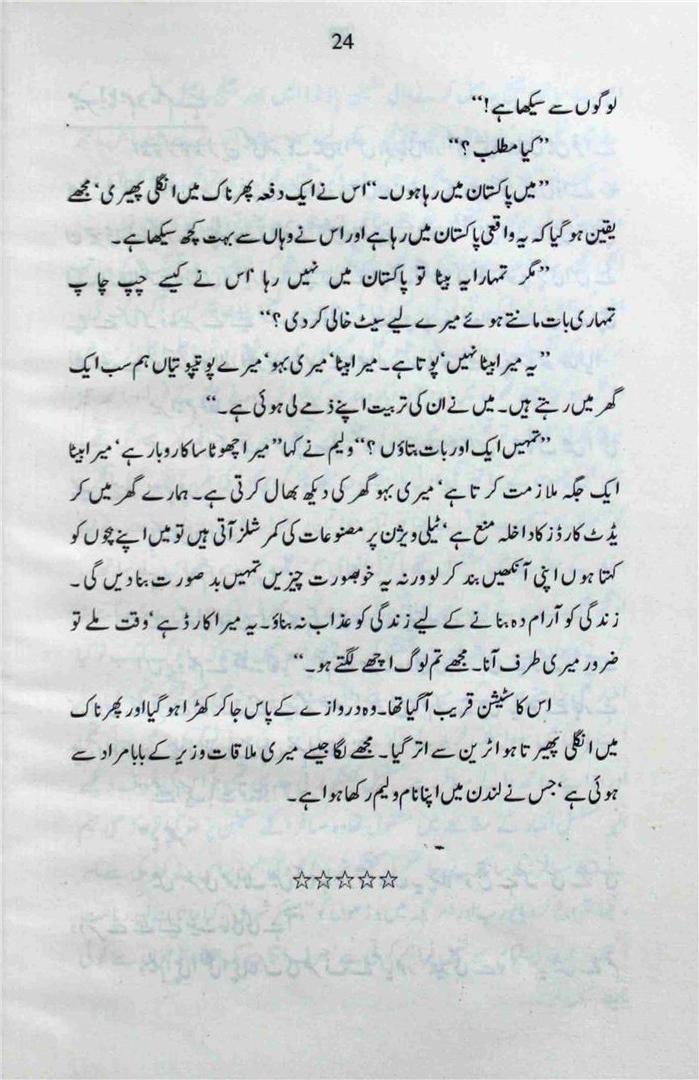 24
لوگوں سے سیکھا ہے!‘‘
’’کیا مطلب؟‘‘
’’میں پاکستان میں رہا ہوں۔‘‘ اس نے ایک دفعہ پھر ناک میں انگلی پھیری‘ مجھے
یقین ہو گیا کہ یہ واقعی پاکستان میں رہا ہے اور اس نے وہاں سے بہت کچھ سیکھا ہے۔
’’مگر تمہارا یہ بیٹا تو پاکستان میں نہیں رہا‘ اس نے کیسے چپ چاپ
تمہاری بات مانتے ہوئے میرے لیے سیٹ خالی کر دی؟‘‘
’’یہ میرا بیٹا نہیں‘ پوتا ہے۔ میرا بیٹا‘ میری بہو‘ میرے پوتے پوتیاں ہم سب ایک
گھر میں رہتے ہیں۔ میں نے ان کی تربیت اپنے ذمے لی ہوئی ہے۔‘‘
’’تمہیں ایک اور بات بتاؤں؟‘‘ ولیم نے کہا ’’میرا چھوٹا سا کاروبار ہے‘ میرا بیٹا
ایک جگہ ملازمت کرتا ہے‘ میری بہو گھر کی دیکھ بھال کرتی ہے۔ ہمارے گھر میں کر
یڈٹ کارڈز کا داخلہ منع ہے‘ ٹیلی ویژن پر مصنوعات کی کمرشلز آتی ہیں تو میں اپنے بچوں کو
کہتا ہوں اپنی آنکھیں بند کر لو ورنہ یہ خوبصورت چیزیں تمہیں بد صورت بنا دیں گی۔
زندگی کو آرام دہ بنانے کے لیے زندگی کو عذاب نہ بناؤ۔ یہ میرا کارڈ ہے‘ وقت ملے تو
ضرور میری طرف آنا۔ مجھے تم لوگ اچھے لگتے ہو۔‘‘
اس کا سٹیشن قریب آ گیا تھا۔ وہ دروازے کے پاس جا کر کھڑا ہو گیا اور پھر ناک
میں انگلی پھیرتا ہوا ٹرین سے اتر گیا۔ مجھے لگا جیسے میری ملاقات وزیر کے بابا مراد سے
ہوئی ہے‘ جس نے لندن میں اپنا نام ولیم رکھا ہوا ہے۔
☆☆☆☆☆